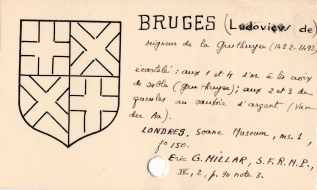 BRUGES (Ludovicus de)
seigneur de la Gruthuyse (1422-1492)
écartelé : aux 1 et 4 d'or à la croix
de sable (Gruuthuyse) ; aux 2 et 3 de
gueules au sautoir d'argent (Van
der Aa).
LONDRES, Soane Museum, ms. 1,
fo 150.
Eric G. MILLAR, S.F.R.M.P.,
IV, 2, p. 90 note 3.